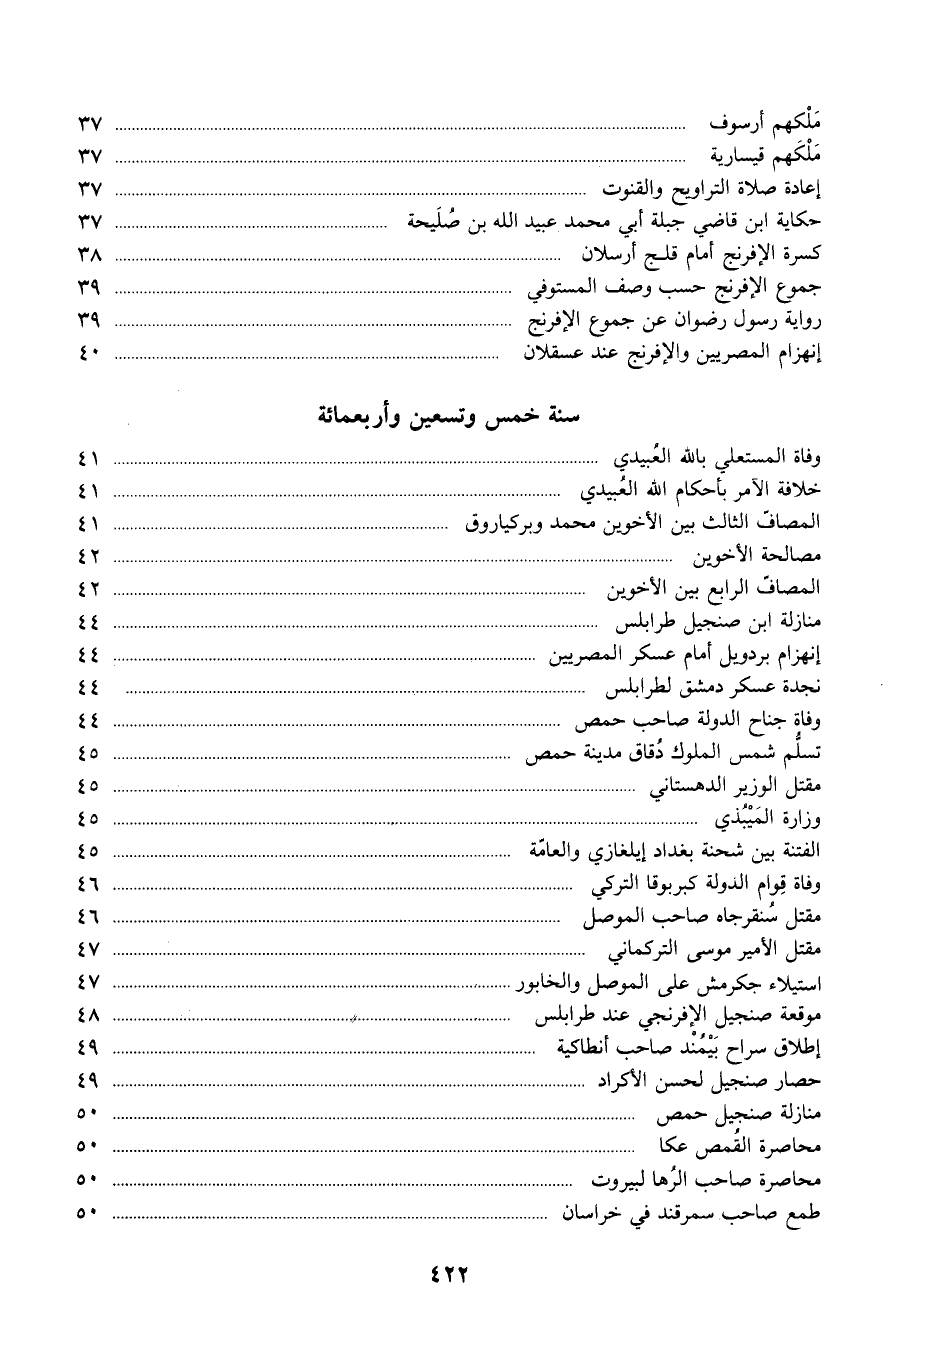 مَلْكهم أرسوف ........ ٣٧
مَلْكَهم قيسارية ........ ٣٧
إعادة صلاة التراويح والقنوت ........ ٣٧
حكاية ابن قاضي جبلة أبي محمد عبيد الله بن صُلَيحة ........ ٣٧
كسرة الإفرنج أمام قلـج أرسلان ........ ٣٨
جموع الإفرنج حسب وصف المستوفي ........ ٣٩
رواية رسول رضوان عن جموع الإفرنج ........ ٣٩
إنهزام المصريين والإفرنج عند عسقلان ........ ٤٠
سنة خمس وتسعين وأربعمائة
وفاة المستعلي بالله العُبيدي ........ ٤١
خلافة الآمر بأحكام الله العُبيدي ........ ٤١
المصافّ الثالث بين الأخوين محمد وبركياروق ........ ٤١
مصالحة الأخوين ........ ٤٢
المصافّ الرابع بين الأخوين ........ ٤٢
منازلة ابن صنجيل طرابلس ........ ٤٤
إنهزام بردويل أمام عسكر المصريين ........ ٤٤
نجدة عسكر دمشق لطرابلس ........ ٤٤
وفاة جناح الدولة صاحب حمص ........ ٤٤
تسلُّم شمس الملوك دُقاق مدينة حمص ........ ٤٥
مقتل الوزير الدهستاني ........ ٤٥
وزارة المَيْبُذي ........ ٤٥
الفتنة بين شحنة بغداد إيلغازي والعامّة ........ ٤٥
وفاة قِوام الدولة كبربوقا التركي ........ ٤٦
مقتل سُنقرجاه صاحب الموصل ........ ٤٦
مقتل الأمير موسى التركماني ........ ٤٧
استيلاء جكرمش على الموصل والخابور ........ ٤٧
موقعة صنجيل الإفرنجي عند طرابلس ........ ٤٨
إطلاق سراح بَيْمُنْد صاحب أنطاكية ........ ٤٩
حصار صنجيل لحسن الأكراد ........ ٤٩
منازلة صنجيل حمص ........ ٥٠
محاصرة القُمص عكا ........ ٥٠
محاصرة صاحب الرُها لبيروت ........ ٥٠
طمع صاحب سمرقند في خراسان ........ ٥٠
٤٢٢